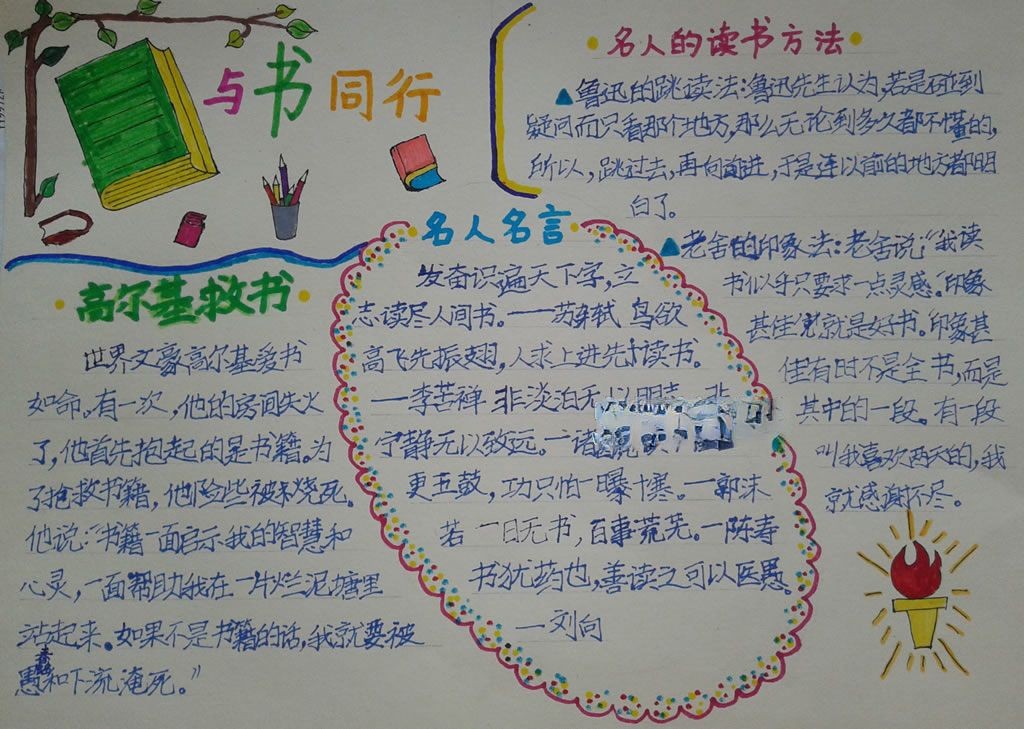 与书同行
名人的读书方法
▲鲁迅的跳读法:鲁迅先生认为,若是碰到
疑问而只看那个地方,那么无论到多久都不懂的,
所以,跳过去,再向前进,于是连以前的地方都明
白了。
▲老舍的印象法:老舍说:“我读
书似乎只要求一点灵感。印象
甚佳便就是好书。印象甚
佳有时不是全书,而是
其中的一段。有一段
叫我喜欢两天的,我
就感谢不尽。
高尔基救书
世界文豪高尔基爱书
如命。有一次,他的房间失火
了,他首先抱起的是书籍。为
了抢救书籍,他险些被烧死。
他说:“书籍一面启示我的智慧和
心灵,一面帮助我在一片烂泥塘里
站起来。如果不是书籍的话,我就要被
愚蠢和下流淹死。”
名人名言
发奋识遍天下字,立
志读尽人间书。——苏轼 鸟欲
高飞先振翅,人求上进先读书。
——李苦禅 非淡泊无以明 非
宁静无以致远。—诸 读
更五鼓,功只怕一曝十寒。—郭沫
若 一日无书,百事荒芜。—陈寿
书犹药也,善读之可以医愚。
—刘向